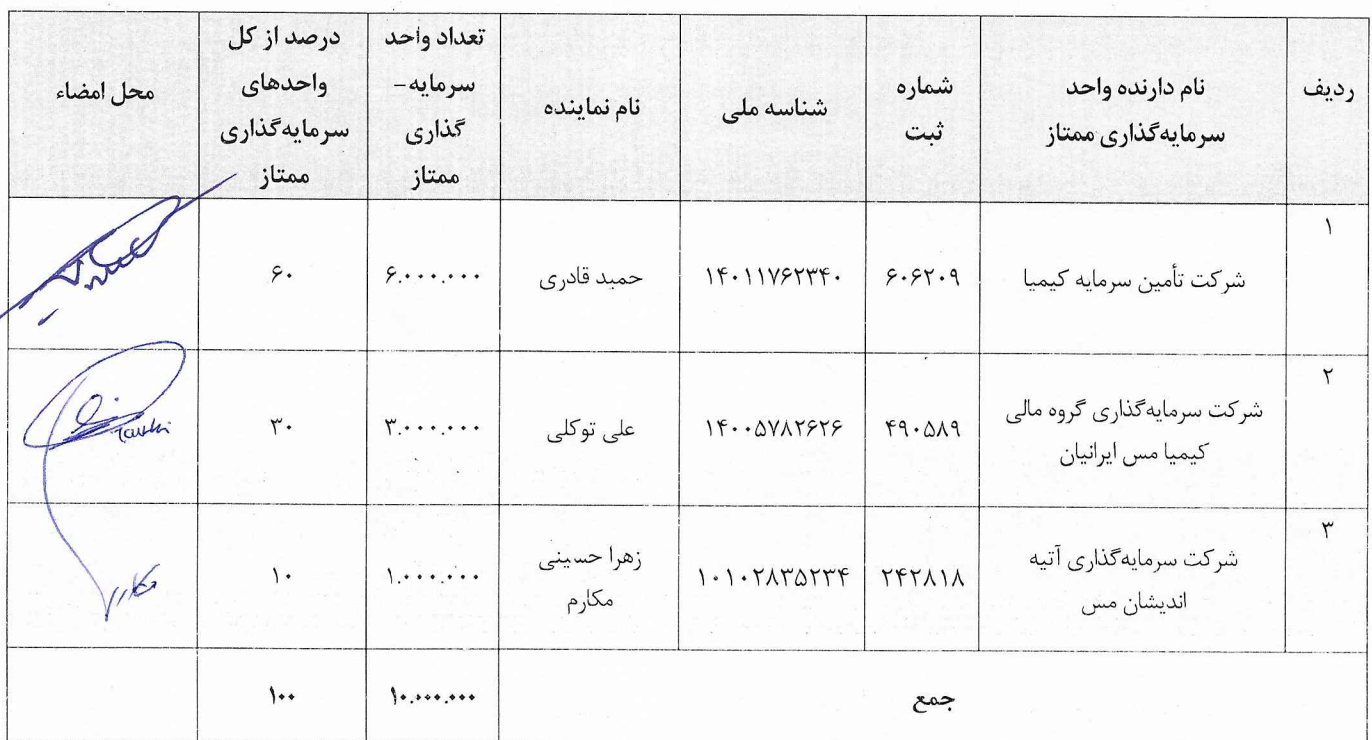 ردیف
نام دارنده واحد
سرمایه‌گذاری ممتاز
شماره
ثبت
شناسه ملی
نام نماینده
تعداد واحد
سرمایه-
گذاری
ممتاز
درصد از کل
واحدهای
سرمایه‌گذاری
ممتاز
محل امضاء
۱
شرکت تأمین سرمایه کیمیا
۶۰۶۲۰۹
۱۴۰۱۱۷۶۲۳۴۰
حمید قادری
۶.۰۰۰.۰۰۰
۶۰
۲
شرکت سرمایه‌گذاری گروه مالی
کیمیا مس ایرانیان
۴۹۰۵۸۹
۱۴۰۰۵۷۸۲۶۲۶
علی توکلی
۳.۰۰۰.۰۰۰
۳۰
۳
شرکت سرمایه‌گذاری آتیه
اندیشان مس
۲۴۲۸۱۸
۱۰۱۰۲۸۳۵۲۳۴
زهرا حسینی
مکارم
۱.۰۰۰.۰۰۰
۱۰
جمع
۱۰.۰۰۰.۰۰۰
۱۰۰